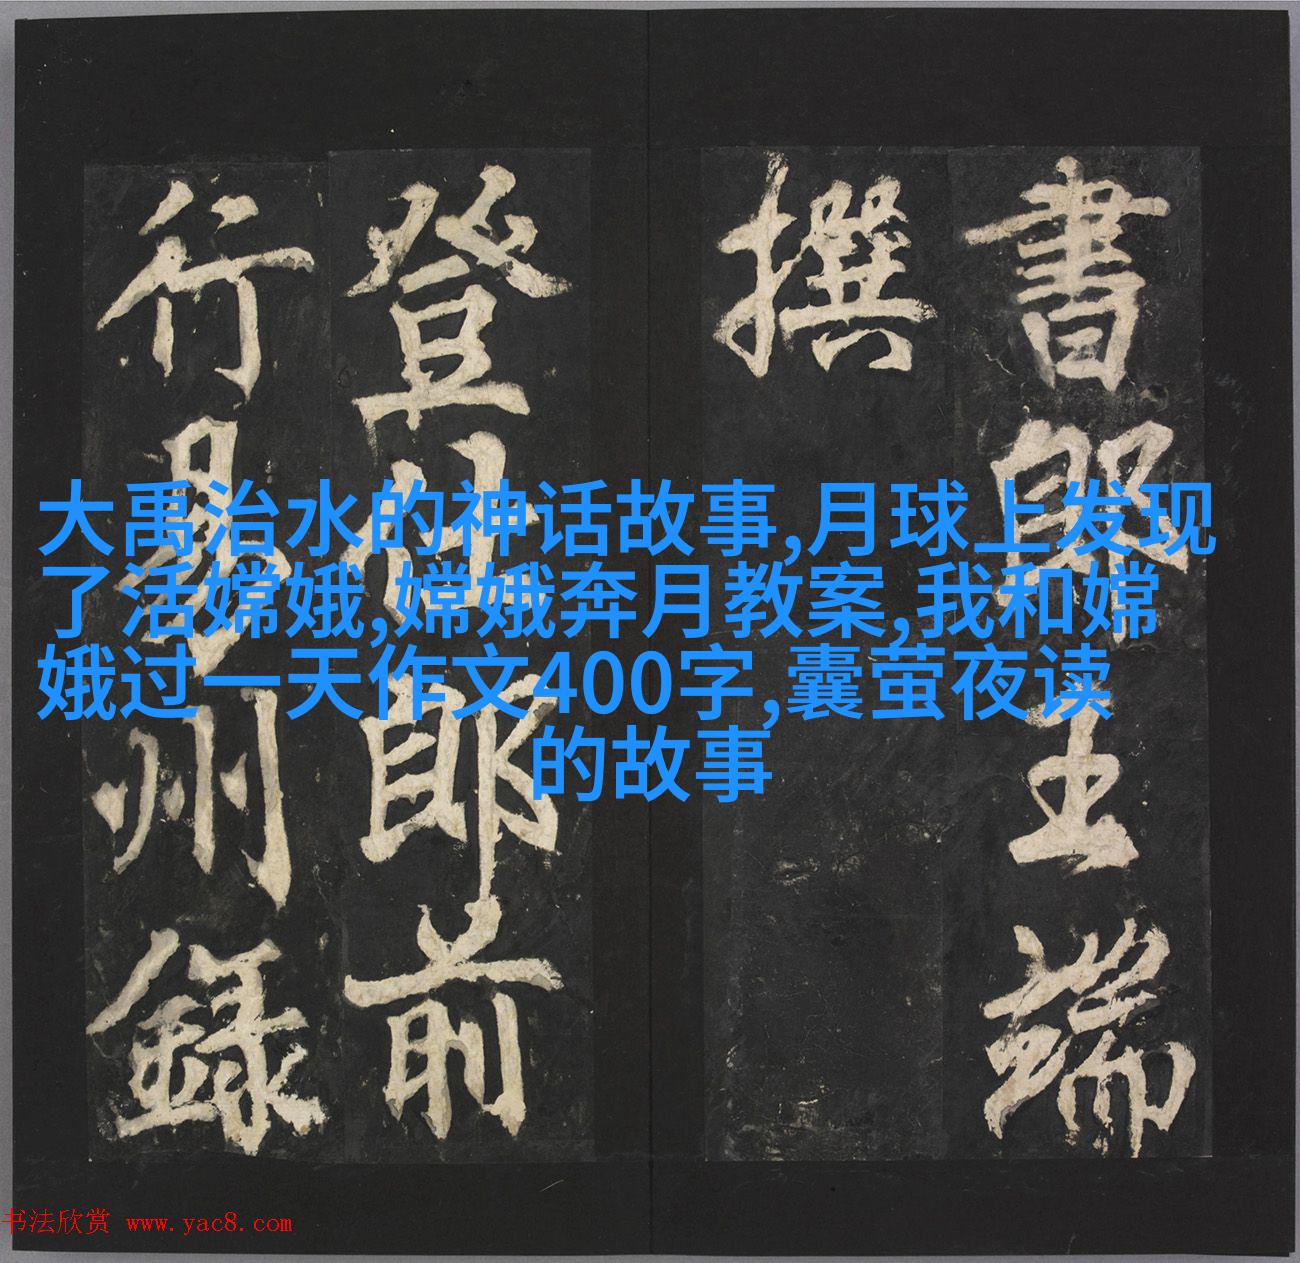 書郎王端
撰
登仕郎前
行易州錄
大禹治水的神话故事,月球上发现
了活嫦娥,嫦娥奔月教案,我和嫦
娥过一天作文400字,囊萤夜读
的故事
书法欣赏 www.yac8.com